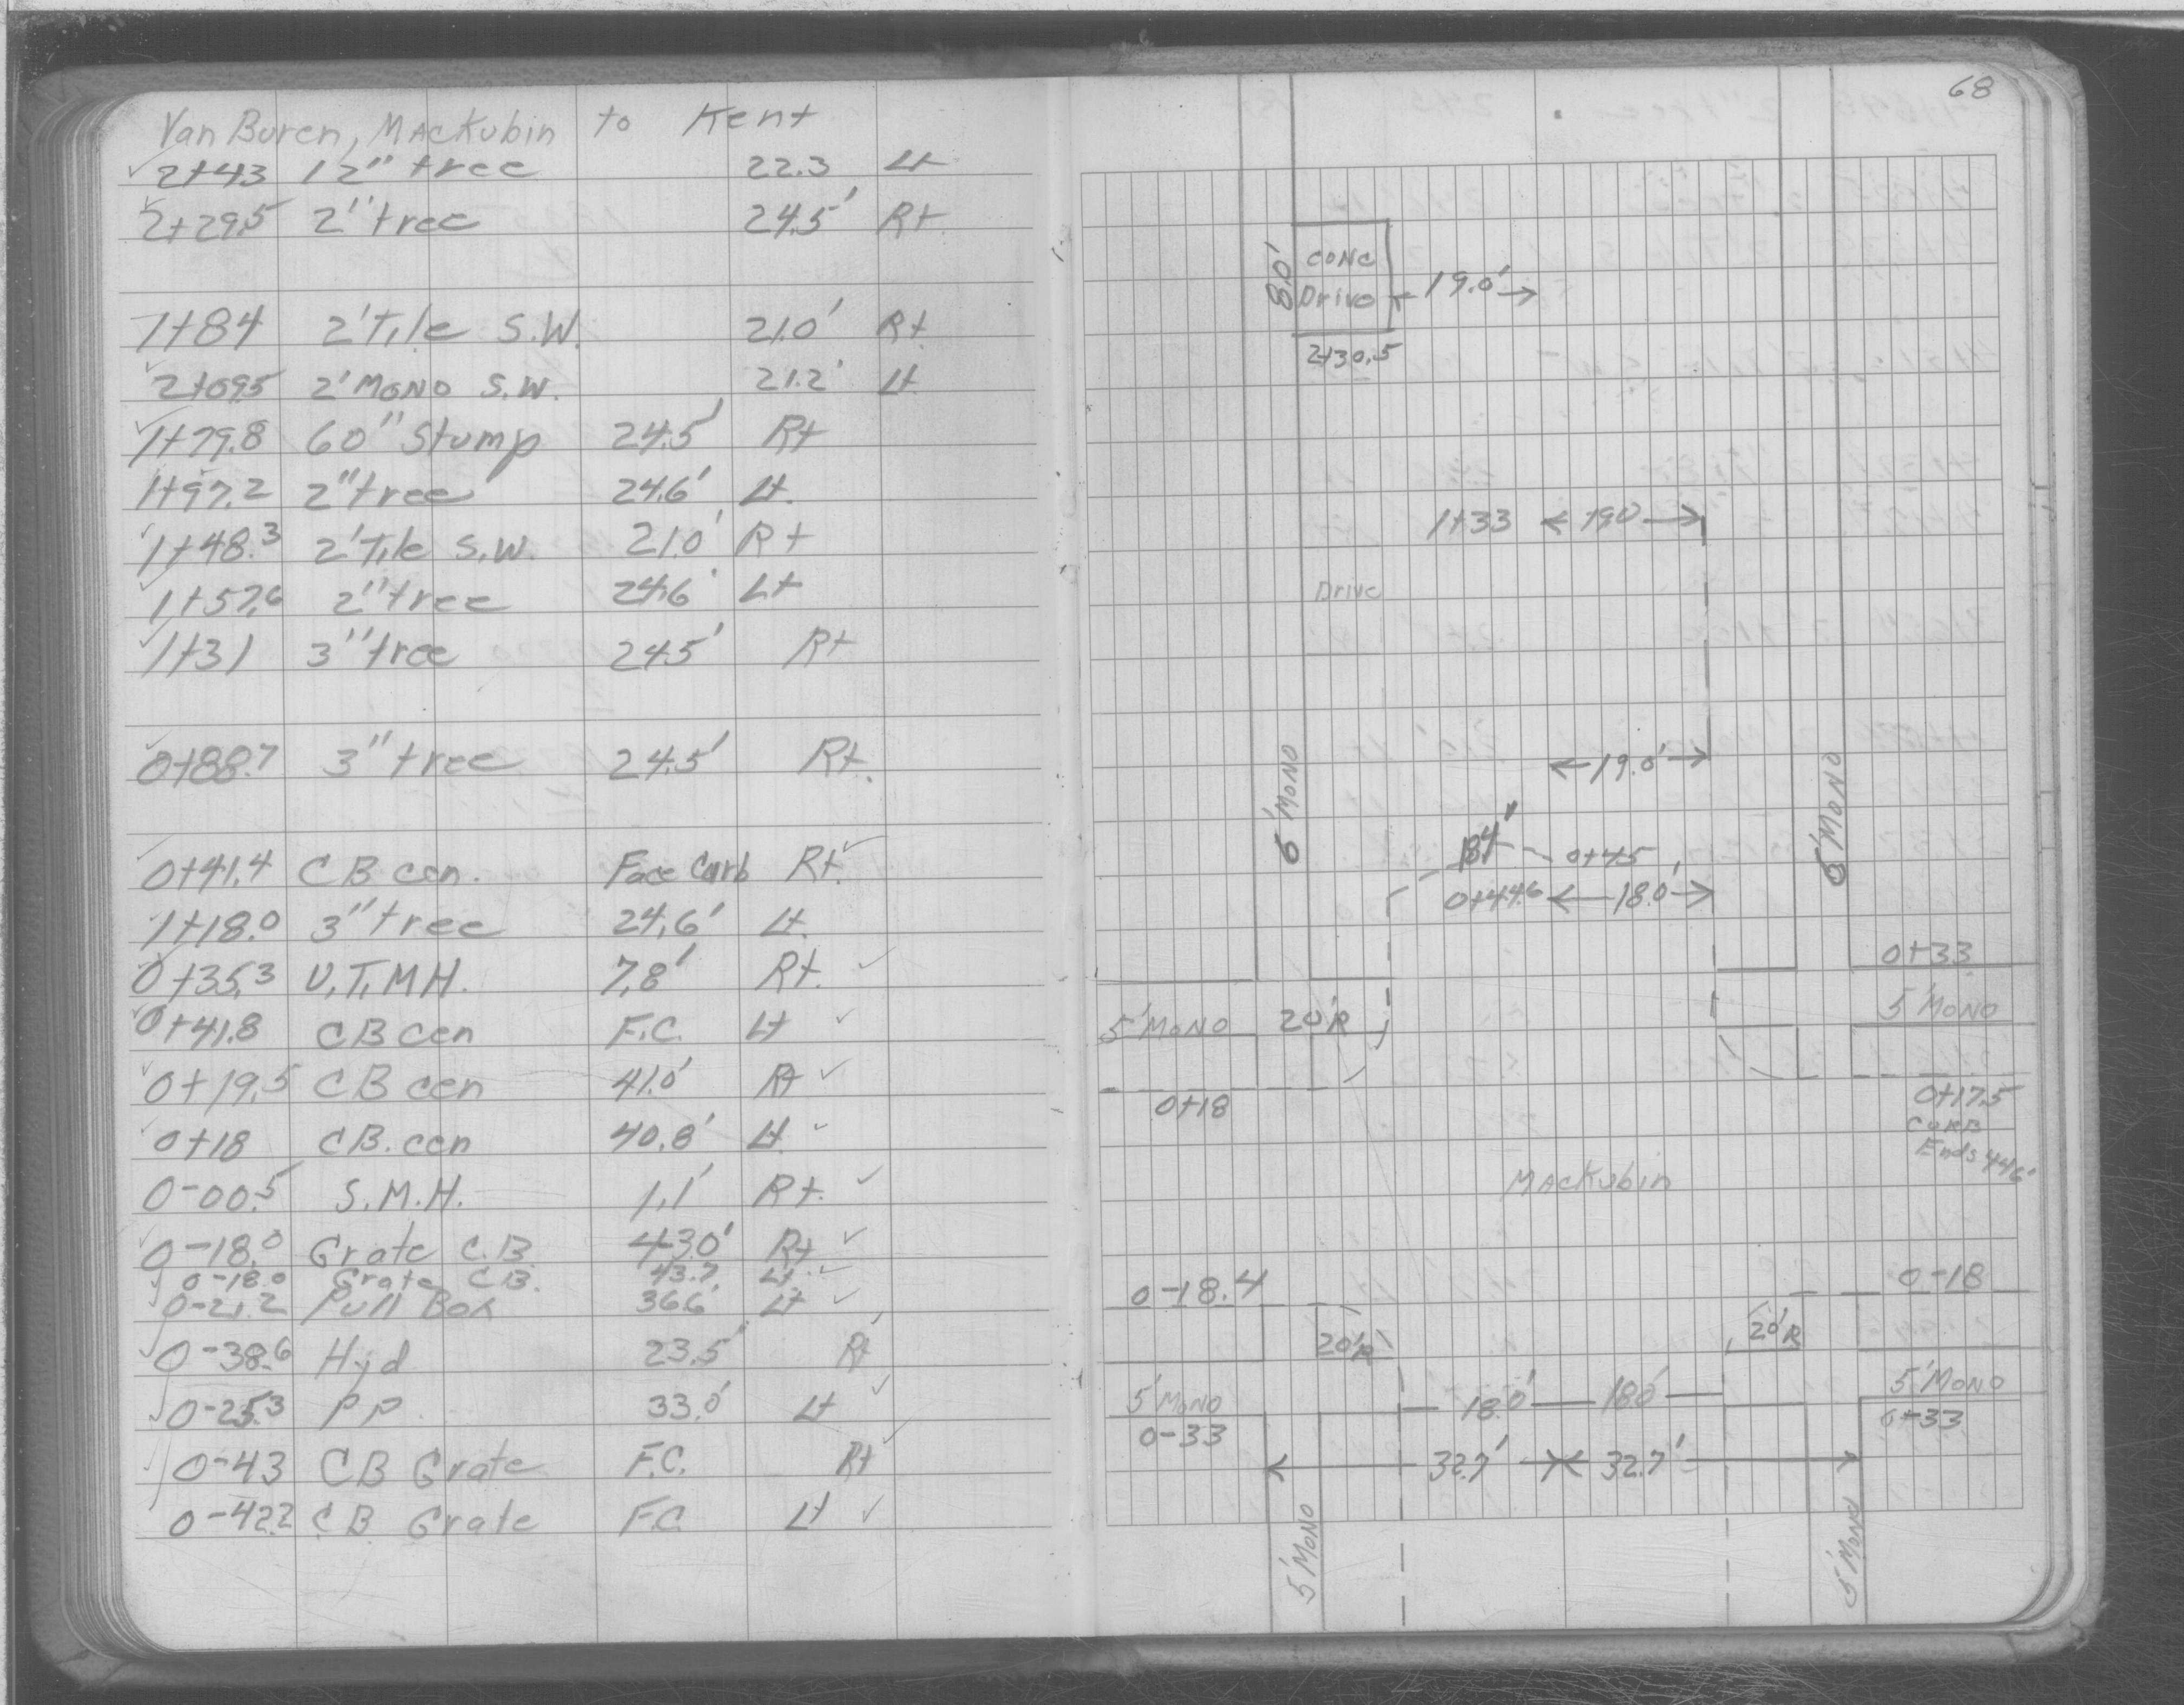 Van Buren, Mackubin to Kent
2+43 12" tree 22.3 Lt
2+29.5 2" tree 24.5' Rt.
1+84 2' Tile S.W. 21.0' Rt.
2+09.5 2' MONO S.W. 21.2' Lt.
1+79.8 60" Stump 24.5' Rt
1+97.2 2" tree 24.6' Lt.
1+48.3 2' Tile S.W. 21.0' Rt
1+57.6 2" tree 24.6' Lt
1+31 3" tree 24.5' Rt
0+88.7 3" tree 24.5' Rt.
0+41.4 CB cen. Face Curb Rt.
1+18.0 3" tree 24.6' Lt.
0+35.3 U.T.M.H. 7.8' Rt.
0+41.8 CB cen F.C. Lt
0+19.5 CB cen 41.0' Rt
0+18 CB. cen 40.8' Lt.
0-00.5 S.M.H. 1.1' Rt.
0-18.0 Grate C.B. 43.0' Rt
0-18.0 Grate C.B. 43.7 Lt.
0-21.2 Pull Box 36.6' Lt
0-38.6 Hyd 23.5' Rt
0-25.3 PP. 33.0' Lt
0-43 CB Grate F.C. Rt
0-42.2 CB Grate F.C. Lt
68
8.0' CONC
Drive 19.0'
2+30.5
1+33 19.0
Drive
19.0'
6' MONO
6' MONO
18.4' 0+45
0+44.6 18.0'
0+33
5' MONO 20'R 5' MONO
0+18 0+17.5
CURB
Ends 44.6'
Mackubin
0-18.4 0-18
20'R 20'R
5' MONO 18.0' 18.0' 5' MONO
0-33 0+33
32.7' 32.7'
5' MONO
5' MONO